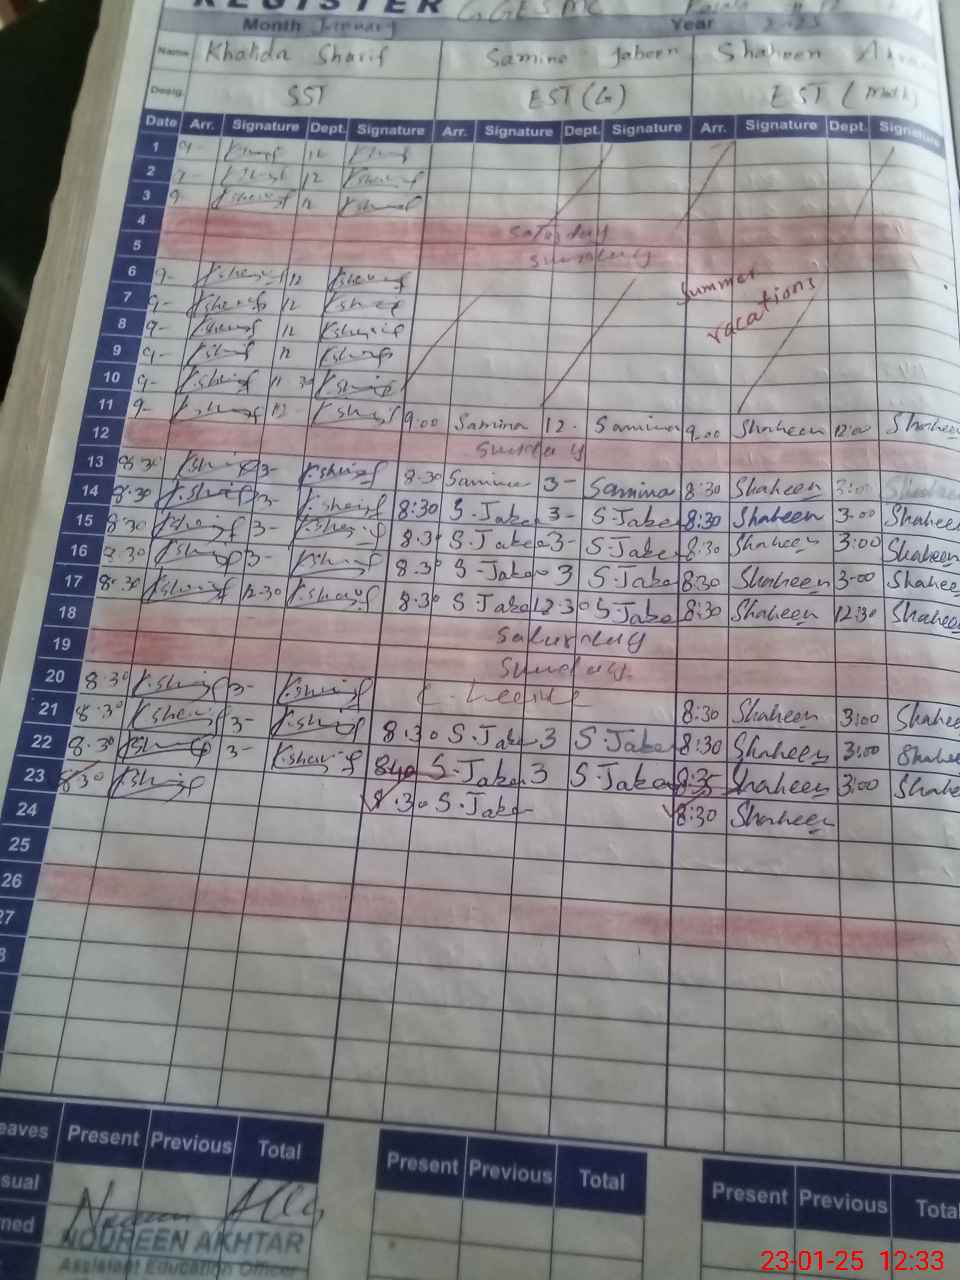 REGISTER
Month January Year 2025
Name Khalida Sharif Samina Jabeen Shaheen
Desig. SST EST (G) EST (Math)
Date Arr. Signature Dept. Signature Arr. Signature Dept. Signature Arr. Signature Dept. Signature
1 9- 12
2 9- K.sharif 12 K.sharif
3 9- K.sharif 12 K.sharif
4 Saturday
5 Sunday
6 9- K.sharif 12 K.sharif Summer
7 9- K.sharif 12 K.sharif vacations
8 9- K.sharif 12 K.sharif
9 9- K.sharif 12 K.sharif
10 9- K.sharif 11 30 K.sharif
11 9- K.sharif 12- K.sharif 9:00 Samina 12. Samina 9.00 Shaheen 12:00 Shaheen
12 Sunday
13 8:30 K.sharif 3- K.sharif 8:30 Samina 3- Samina 8:30 Shaheen 3:00 Shaheen
14 8:30 K.sharif 3- K.sharif 8:30 S.Jabe 3- S.Jabe 8:30 Shaheen 3.00 Shaheen
15 8:30 K.sharif 3- K.sharif 8:30 S.Jabe 3- S.Jabe 8:30 Shaheen 3:00 Shaheen
16 8:30 K.sharif 3- K.sharif 8:30 S Jabe 3 S.Jabe 8:30 Shaheen 3:00 Shaheen
17 8:30 K.sharif 12:30 K.sharif 8:30 S Jabe 12:30 S Jabe 8:30 Shaheen 12:30 Shaheen
18 Saturday
19 Sunday
20 8:30 K.sharif 3- K.sharif C-Leave 8:30 Shaheen 3:00 Shahee
21 8:30 K.sharif 3- K.sharif 8:30 S.Jabe 3 S.Jabe 8:30 Shaheen 3:00 Shahe
22 8:30 K.sharif 3- K.sharif 840 S.Jabe 3 S.Jabe 8:35 Shaheen 3:00 Shahe
23 8:30 K.sharif 8:30 S.Jabe 8:30 Shaheen
24
25
26
27
8
eaves Present Previous Total Present Previous Total Present Previous Total
sual
med
NOUREEN AKHTAR
Assistant Education Officer
23-01-25 12:33